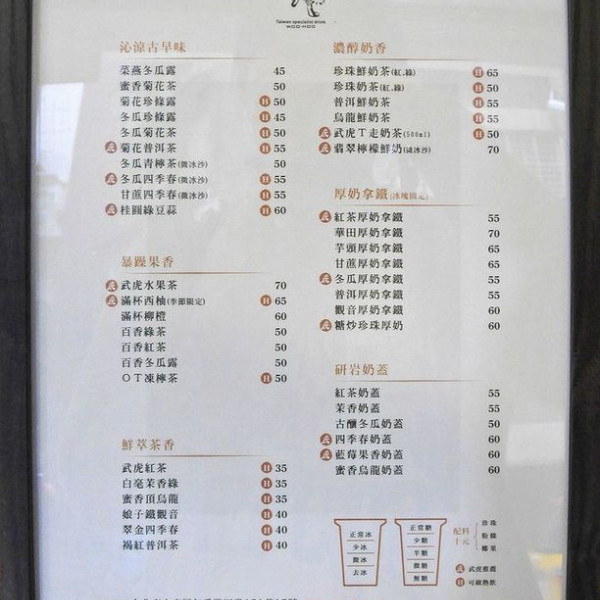 Taiwan specialist drink
WOO-HOO
沁涼古早味
菜燕冬瓜露 45
蜜香菊花茶 50
菊花珍條露 H 50
冬瓜珍條露 H 45
冬瓜菊花茶 H 50
虎 菊花普洱茶 H 55
冬瓜青檸茶(微冰沙) 50
虎 冬瓜四季春(微冰沙) H 55
甘蔗四季春(微冰沙) H 55
虎 桂圓綠豆蒜 H 60
暴躁果香
虎 武虎水果茶 70
虎 滿杯西柚(季節限定) H 65
滿杯柳橙 60
百香綠茶 50
百香紅茶 50
百香冬瓜露 50
OT凍檸茶 H 50
鮮萃茶香
武虎紅茶 H 35
白毫茉香綠 H 35
蜜香頂烏龍 H 35
娘子鐵觀音 H 40
翠金四季春 H 40
褐紅普洱茶 H 40
濃醇奶香
珍珠鮮奶茶(紅.綠) H 65
珍珠奶茶(紅.綠) H 50
普洱鮮奶茶 H 55
烏龍鮮奶茶 H 55
虎 武虎T走奶茶(500ml) H 50
虎 翡翠檸檬鮮奶(綠冰沙) 70
厚奶拿鐵(冰塊固定)
虎 紅茶厚奶拿鐵 55
華田厚奶拿鐵 70
芋頭厚奶拿鐵 65
甘蔗厚奶拿鐵 65
虎 冬瓜厚奶拿鐵 55
普洱厚奶拿鐵 55
觀音厚奶拿鐵 60
虎 糖炒珍珠厚奶 60
研岩奶蓋
紅茶奶蓋 55
茉香奶蓋 55
古釀冬瓜奶蓋 50
虎 四季春奶蓋 60
虎 藍莓果香奶蓋 60
蜜香烏龍奶蓋 60
正常冰
少冰
微冰
去冰
正常糖
少糖
半糖
微糖
無糖
配料十元
珍珠
粉條
椰果
虎 武虎推薦
H 可做熱飲